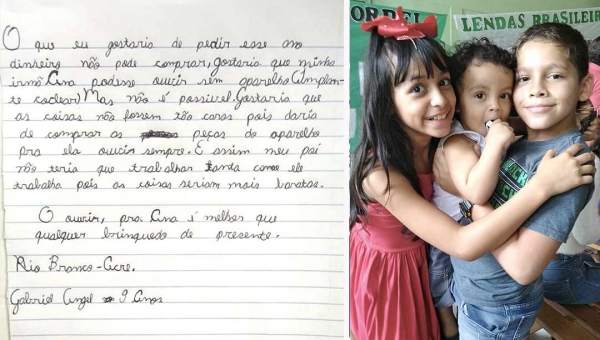 O que eu gostaria de pedir esse ano
dinheiro não pode comprar, gostaria que minha
irmã Ana podesse ouvir sem aparelho (implan-
te coclear) Mas não é possivel. Gostaria que
as coisas não fossem tão caras pois daria
de comprar as peças do aparelho
pra ela ouvir sempre. E assim meu pai
não teria que trabalhar tanto como ele
trabalha pois as coisas seriam mais baratas.
O ouvir, pra Ana é melhor que
qualquer brinquedo de presente.
Rio Branco-Acre.
Gabriel Angel 9 Anos
ORDEL
LENDAS BRASILEIR